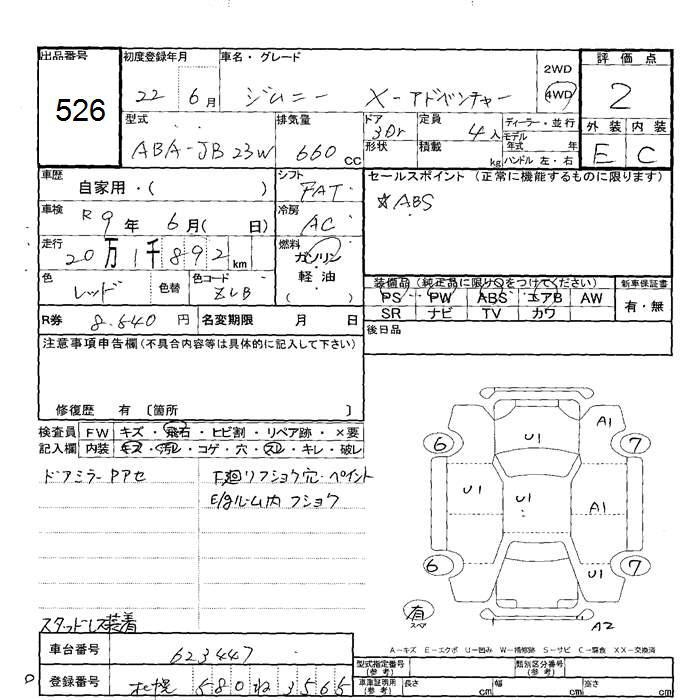 出品番号 526
初度登録年月 22年 6月
車名・グレード ジムニー X-アドベンチャー
2WD
4WD
評価点 2
外装 内装
E C
型式 ABA-JB23W
排気量 660 CC
ドア 3Dr
形状
定員 4人
積載 kg
ディーラー・並行
モデル年式 年
ハンドル 左・右
車歴 自家用・( )
シフト FAT
セールスポイント (正常に機能するものに限ります)
☆ABS
車検 R9年 6月( 日)
冷房 AC
走行 20万1千892km
燃料 ガソリン・軽油 ( )
色 レッド 色替
色コード ZLB
装備品 (純正品に限り○をつけてください)
PS PW ABS エアB AW
SR ナビ TV カワ
新車保証書 有・無
R券 8.640円
名変期限 月 日
後日品
注意事項申告欄 (不具合内容等は具体的に記入して下さい)
修復歴 有 〔箇所 〕
検査員 FW キズ・飛石・ヒビ割・リペア跡・×要
記入欄 内装 キズ・汚レ・コゲ・穴・スレ・キレ・破レ
ドアミラーPアセ
F廻リフショウ穴・ペイント
E/gルーム内フショウ
A1
U1
6
7
U1
U1
A1
6
U1
7
有
スペア
A2
スタッドレス装着
A-キズ E-エクボ U-凹み W-補修跡 S-サビ C-腐食 XX-交換済
車台番号 623447
型式指定番号 (参考)
類別区分番号 (参考)
登録番号 札幌 580 ね 3565
車庫証明用 (参考) 長さ cm 幅 cm 高さ cm